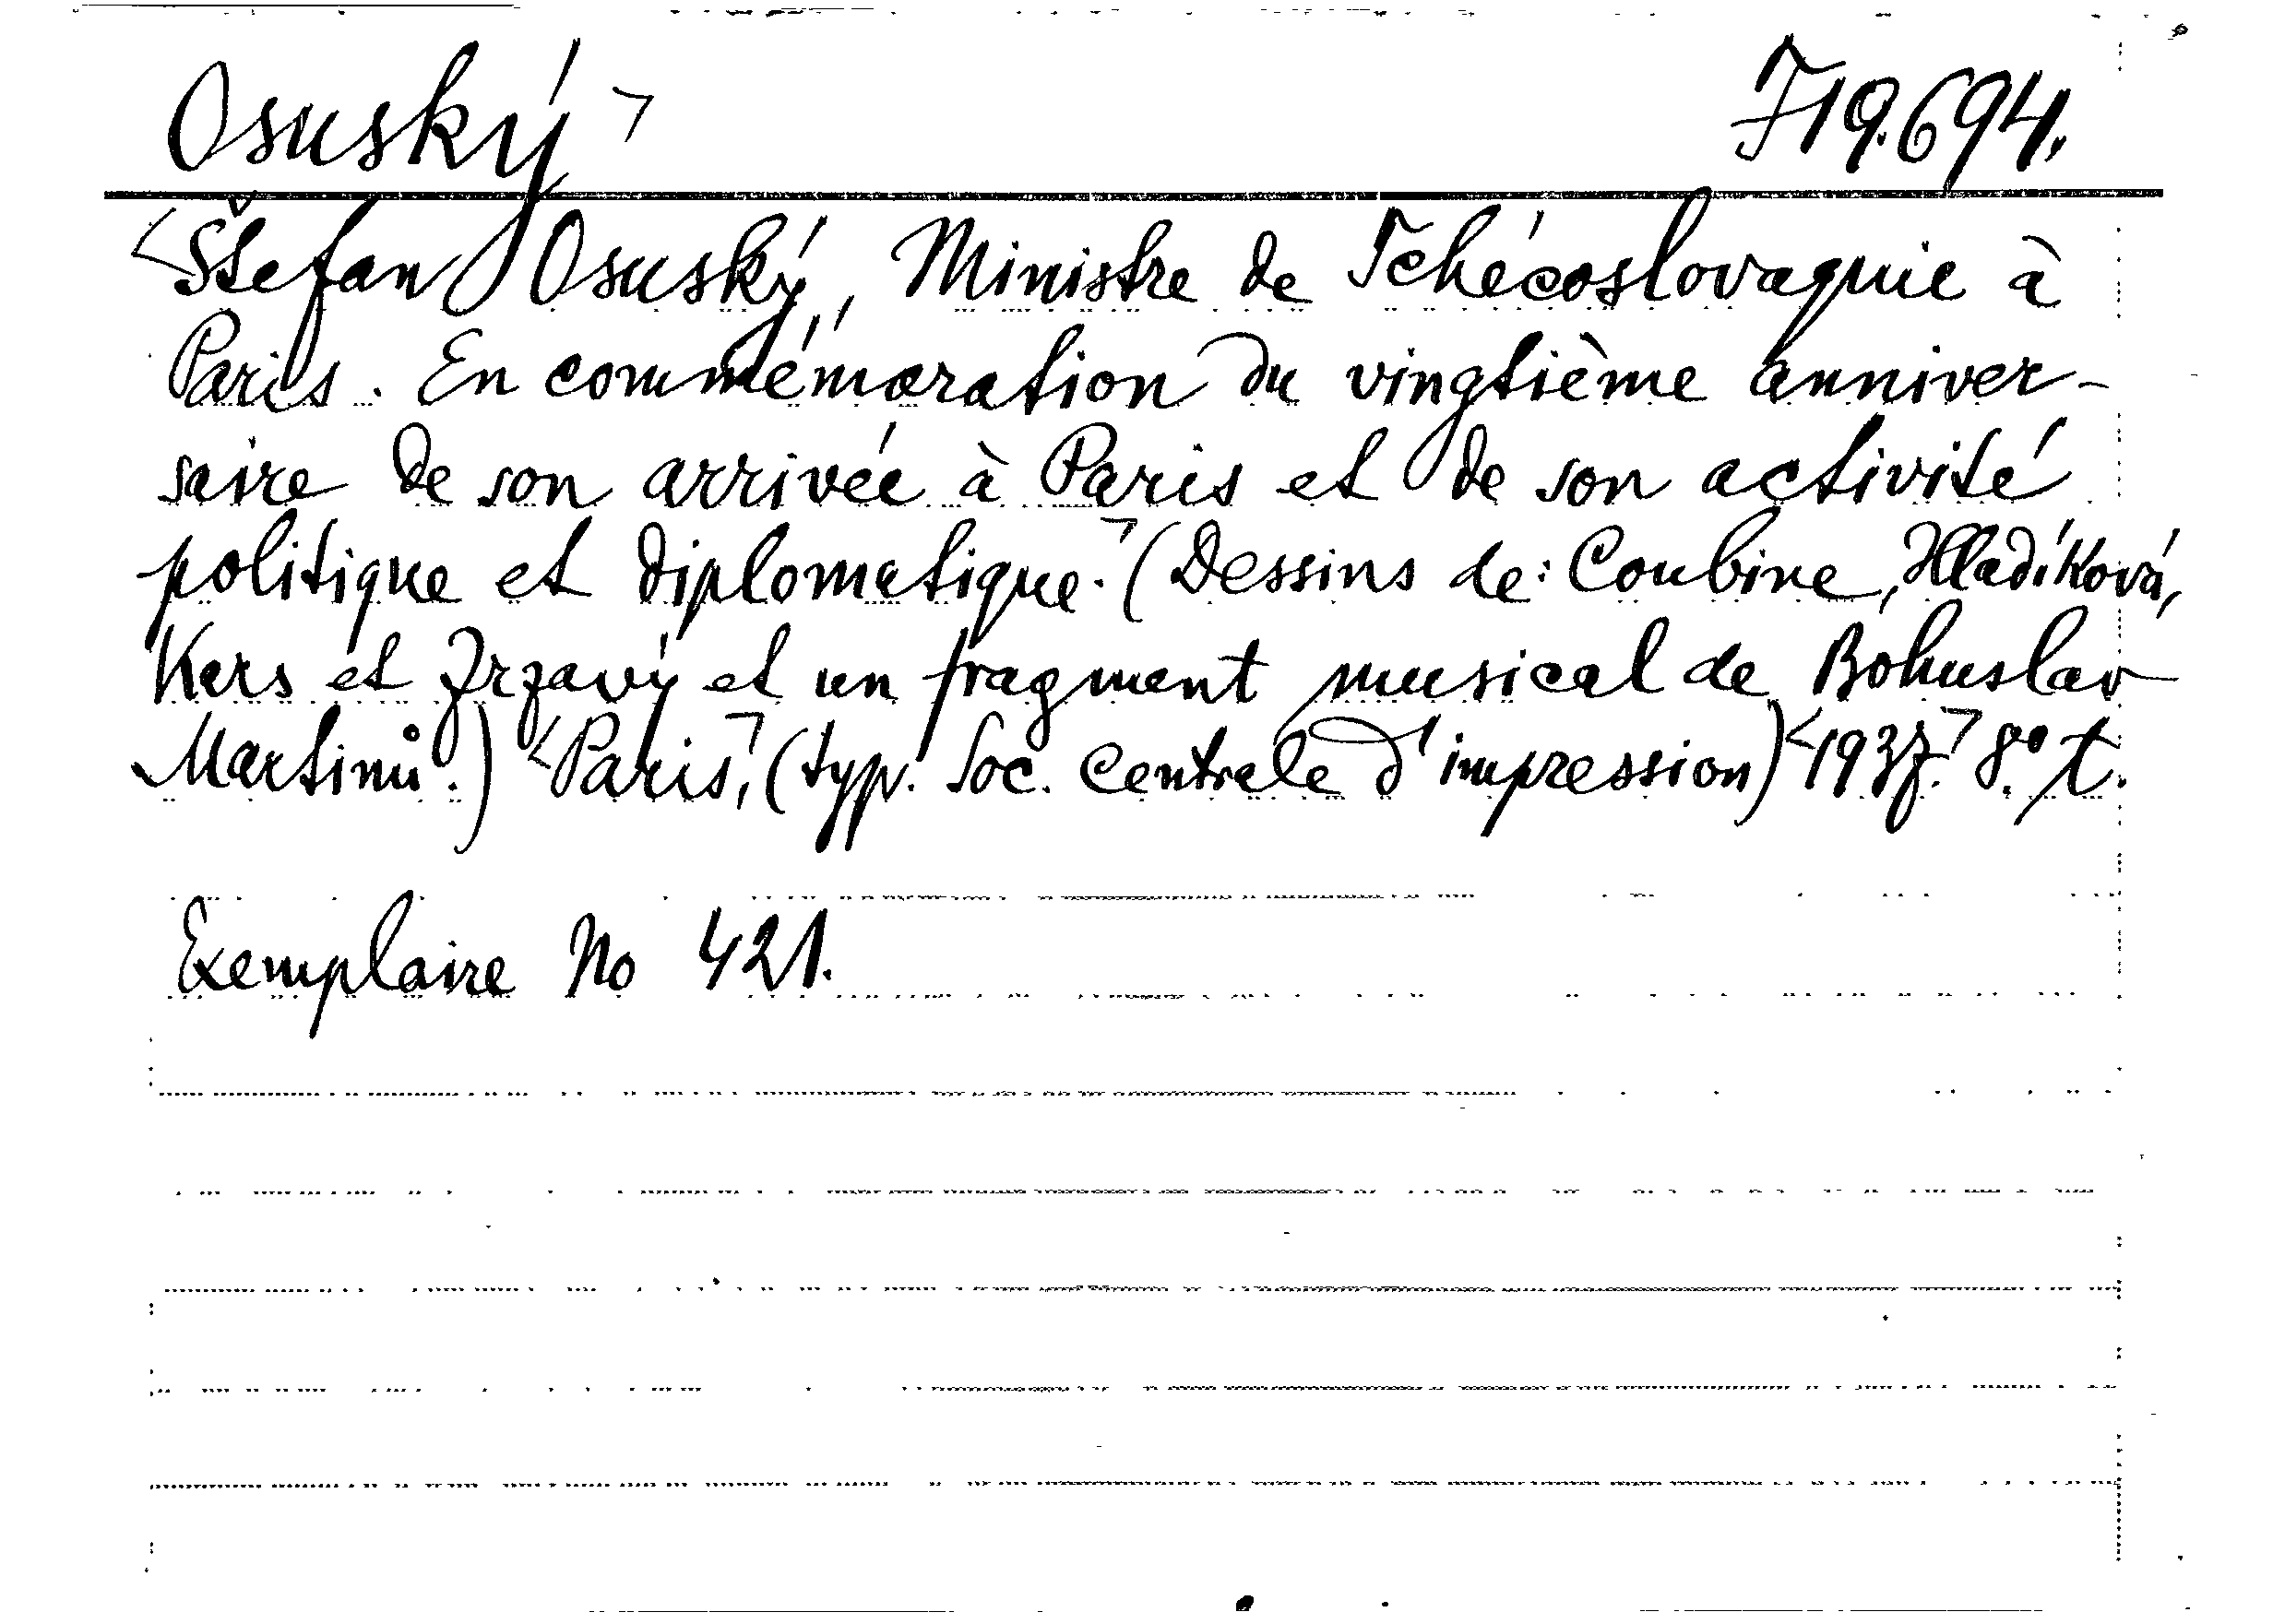 Osuský ¬ 719.694.
<Štefan Osuský, Ministre de Tchécoslovaquie à
Paris. En commémoration du vingtième anniver-
saire de son arrivée à Paris et de son activité
politique et diplomatique.¬ (Dessins de: Coubine, Hladíková,
Kars et Zrzavý et un fragment musical de Bohuslav
Martinů.) <Paris,¬ (typ. Soc. Centrale d'impression) <1937.¬ 8° t.
Exemplaire No 421.